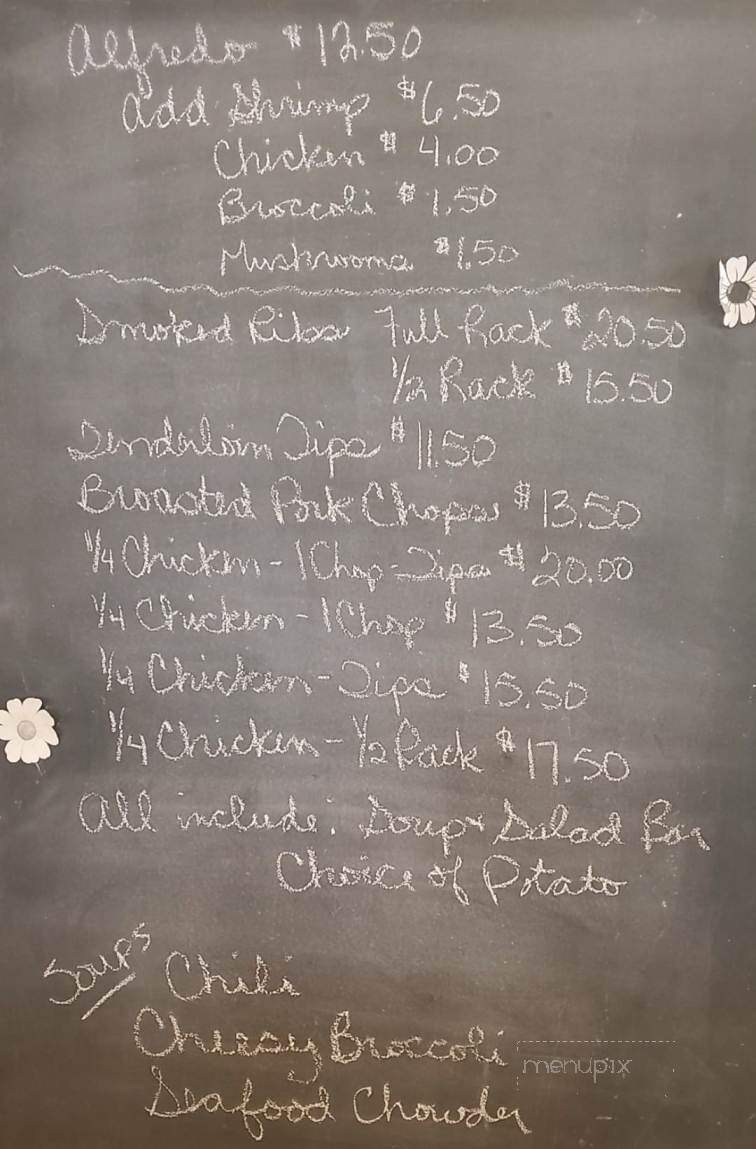 Alfredo $12.50
add Shrimp $6.50
Chicken $4.00
Broccoli $1.50
Mushrooms $1.50
Smoked Ribs Full Rack $20.50
1/2 Rack $15.50
Tenderloin Tips $11.50
Broasted Pork Chops $13.50
1/4 Chicken - 1 Chop - Tips $20.00
1/4 Chicken - 1 Chop $13.50
1/4 Chicken - Tips $15.50
1/4 Chicken - 1/2 Rack $17.50
All include: Soup & Salad Bar
Choice of Potato
Soups Chili
Cheesy Broccoli
Seafood Chowder
menupix